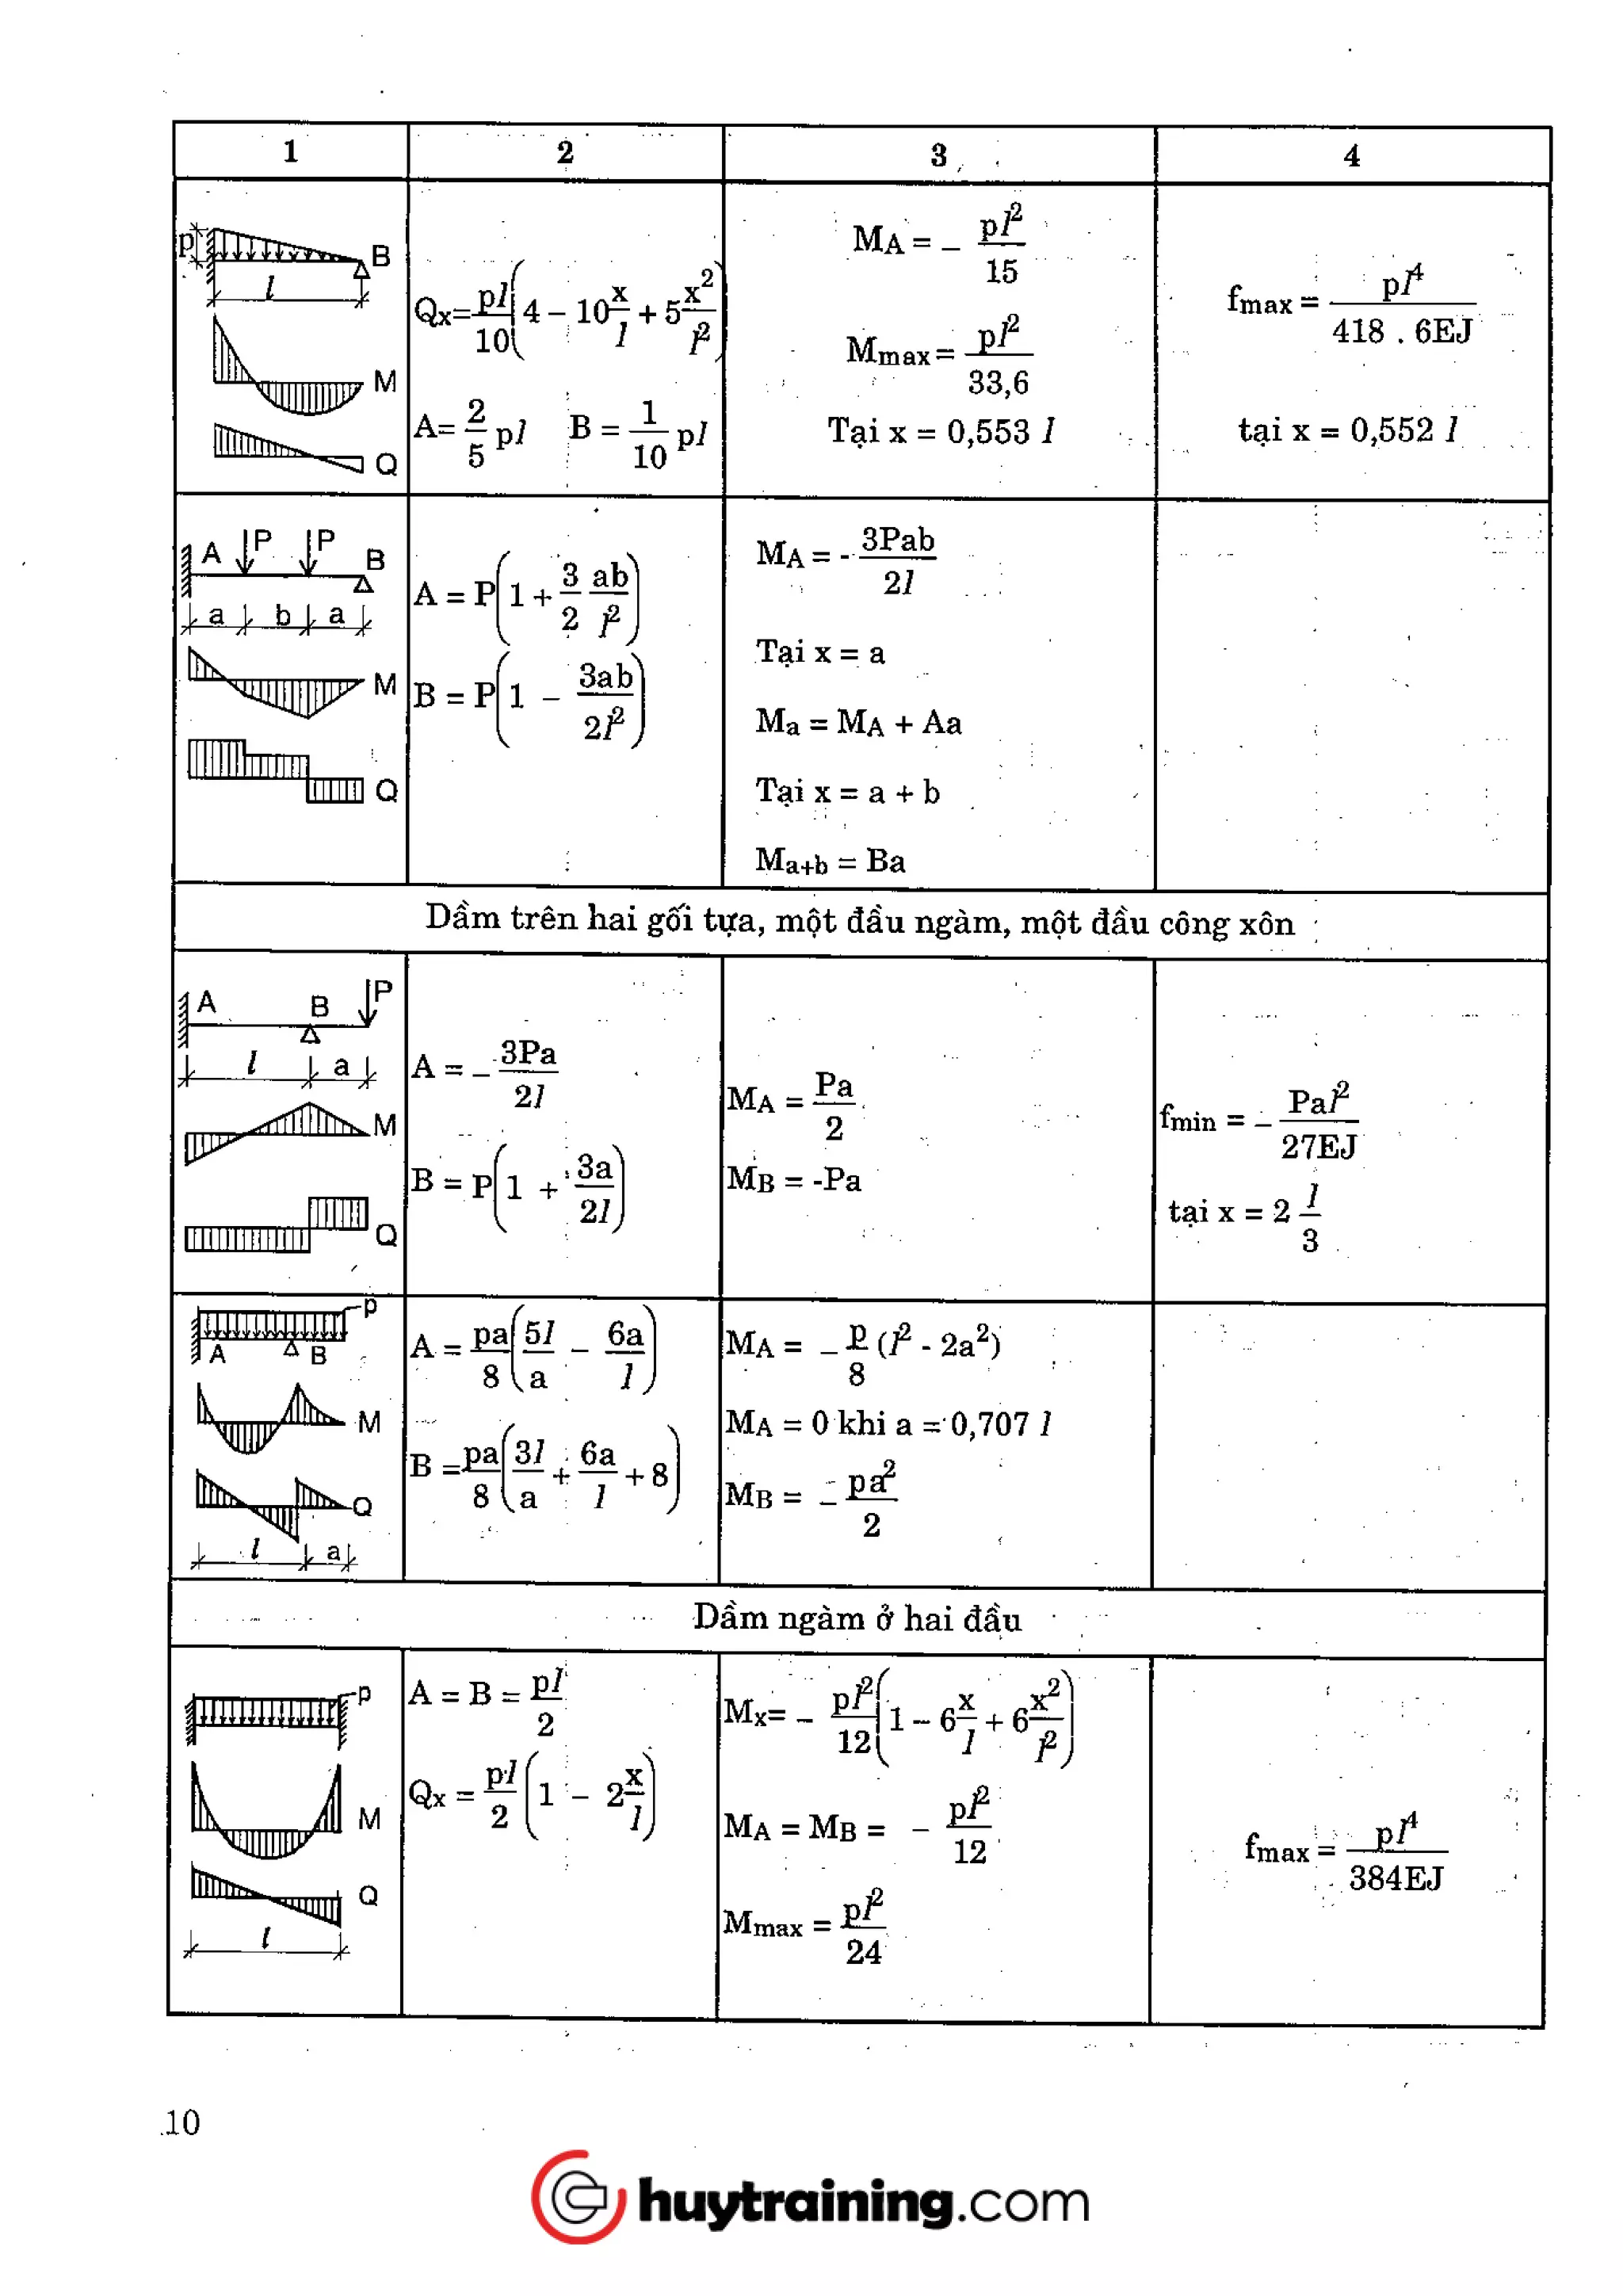 1 2 3 4
p B
l
M
Q
Qx = pl/10 (4 - 10 x/l + 5 x²/l²)
A = 2/5 pl B = 1/10 pl
MA = - pl²/15
Mmax = pl²/33,6
Tại x = 0,553 l
fmax = pl⁴/418 . 6EJ
tại x = 0,552 l
A P P B
a b a
M
Q
A = P(1 + 3/2 ab/l²)
B = P(1 - 3ab/2l²)
MA = - 3Pab/2l
Tại x = a
Ma = MA + Aa
Tại x = a + b
Ma+b = Ba
Dầm trên hai gối tựa, một đầu ngàm, một đầu công xôn
A B P
l a
M
Q
A = - 3Pa/2l
B = P(1 + 3a/2l)
MA = Pa/2
MB = -Pa
fmin = - Pal²/27EJ
tại x = 2 l/3
p
A B
M
Q
l a
A = pa/8 (5l/a - 6a/l)
B = pa/8 (3l/a + 6a/l + 8)
MA = - p/8 (l² - 2a²)
MA = 0 khi a = 0,707 l
MB = - pa²/2
Dầm ngàm ở hai đầu
p
M
Q
l
A = B = pl/2
Qx = pl/2 (1 - 2 x/l)
Mx = - pl²/12 (1 - 6 x/l + 6 x²/l²)
MA = MB = - pl²/12
Mmax = pl²/24
fmax = pl⁴/384EJ
10
huytraining.com